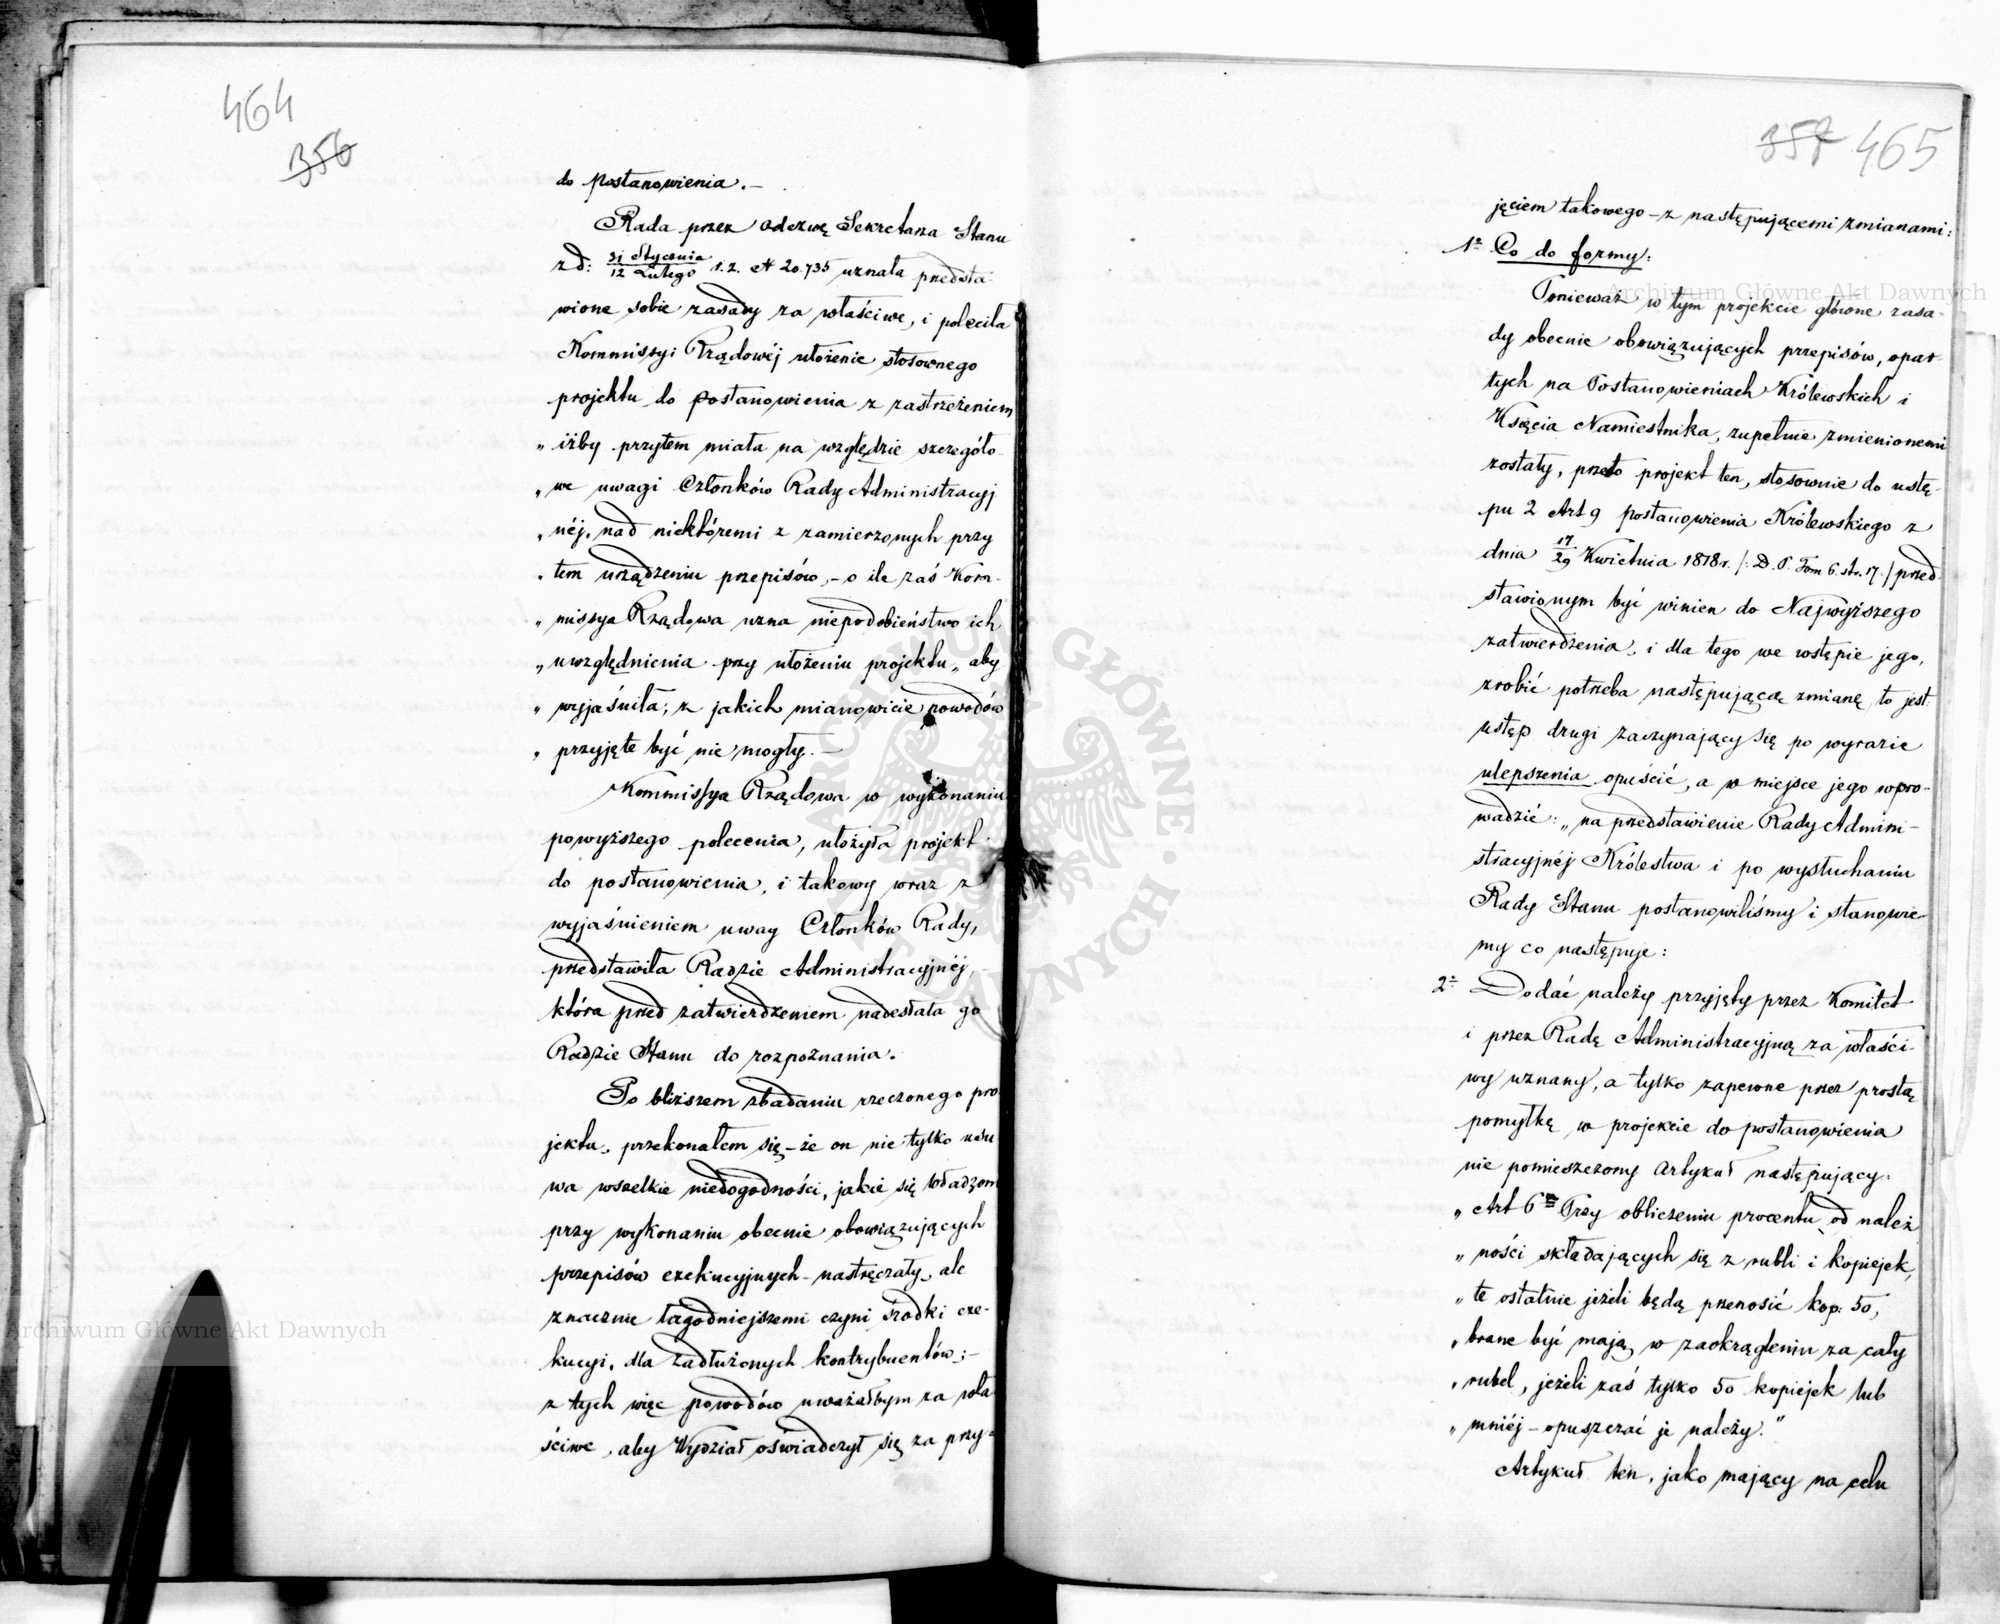 464
356
do postanowienia.—
Rada przez odezwę Sekretarza Stanu
z d: 31 Stycznia / 12 Lutego r. z. № 20.735 uznała przedsta
wione sobie zasady za właściwe, i poleciła
Kommissyi Rządowéj ułożenie stosownego
projektu do postanowienia z zastrzeżeniem
„ iżby przytem miała na względzie szczegóło-
„ we uwagi Członków Rady Administracyj
„ néj, nad niektóremi z zamierzonych przy
„ tem urządzeniu przepisów,– o ile zaś Kom-
„ missya Rządowa uzna niepodobieństwo ich
„ uwzględnienia przy ułożeniu projektu, aby
„ wyjaśniła, z jakich mianowicie powodów
„ przyjęte być nie mogły.—
Kommissya Rządowa w wykonaniu
powyższego polecenia, ułożyła projekt
do postanowienia, i takowy wraz z
wyjaśnieniem uwag Członków Rady,
przedstawiła Radzie Administracyjnéj,
która przed zatwierdzeniem nadesłała go
Radzie Stanu do rozpoznania.
Po bliższem zbadaniu rzeczonego pro
jektu, przekonałem się – że on nie tylko usu
wa wszelkie niedogodności, jakie się władzom
przy wykonaniu obecnie obowiązujących
przepisów exekucyjnych – nastręczały, ale
znacznie łagodniejszemi czyni środki exe-
kucyi, dla zadłużonych kontrybuentów;–
z tych więc powodów uważałbym za wła
ściwe, aby Wydział oświadczył się za przy=
357 465
jęciem takowego – z następującemi zmianami:
1° Co do formy:
Ponieważ w tym projekcie główne zasa-
dy obecnie obowiązujących przepisów, opar-
tych na Postanowieniach Królewskich i
Księcia Namiestnika, zupełnie zmienionemi
zostały, przeto projekt ten, stosownie do ustę-
pu 2 Art 9 postanowienia Królewskiego z
dnia 17/29 Kwietnia 1818 r. /: D. P. Tom 6. str. 17. / przed
stawionym być winien do Najwyższego
zatwierdzenia, i dla tego we wstępie jego,
zrobić potrzeba następującą zmianę, to jest:
ustęp drugi zaczynający się po wyrazie
ulepszenia opuścić, a w miejsce jego wpro-
wadzić: „na przedstawienie Rady Admini-
stracyjnéj Królestwa i po wysłuchaniu
Rady Stanu postanowiliśmy i stanowie-
my co następuje:
2° Dodać należy przyjęty przez Komitet
i przez Radę Administracyjną za właści-
wy uznany, a tylko zapewne przez prostą
pomyłkę w projekcie do postanowienia
nie pomieszczony artykuł następujący:
„ Art 6 Przy obliczeniu procentu od należ
„ ności składających się z rubli i kopiejek,
„ te ostatnie jeżeli będą przenosić kop: 50,
„ brane być mają, w zaokrągleniu za cały
„ rubel, jeżeli zaś tylko 50 kopiejek lub
„ mniéj – opuszczać je należy."
Artykuł ten, jako mający na celu
Archiwum Główne Akt Dawnych
Archiwum Główne Akt Dawnych
ARCHIWUM GŁÓWNE AKT DAWNYCH